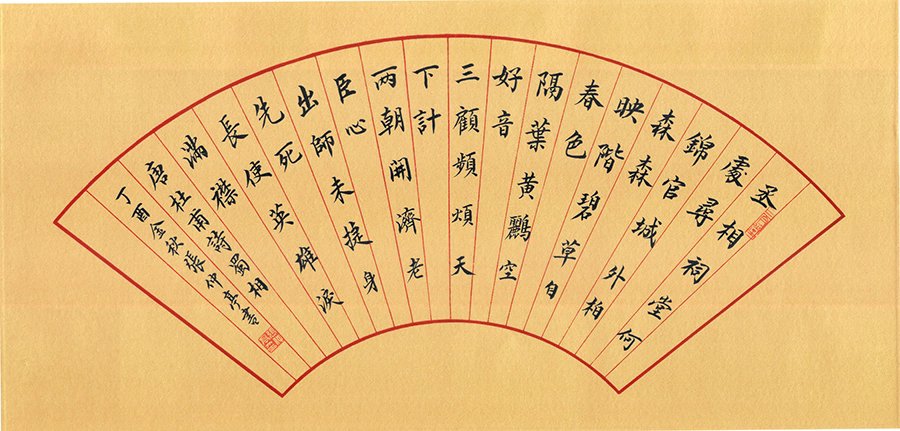 丞相祠堂何
處尋
錦官城外柏
森森
映階碧草自
春色
隔葉黃鸝空
好音
三顧頻煩天
下計
兩朝開濟老
臣心
出師未捷身
先死
長使英雄淚
滿襟
唐杜甫詩蜀相
丁酉金秋張仲亭書